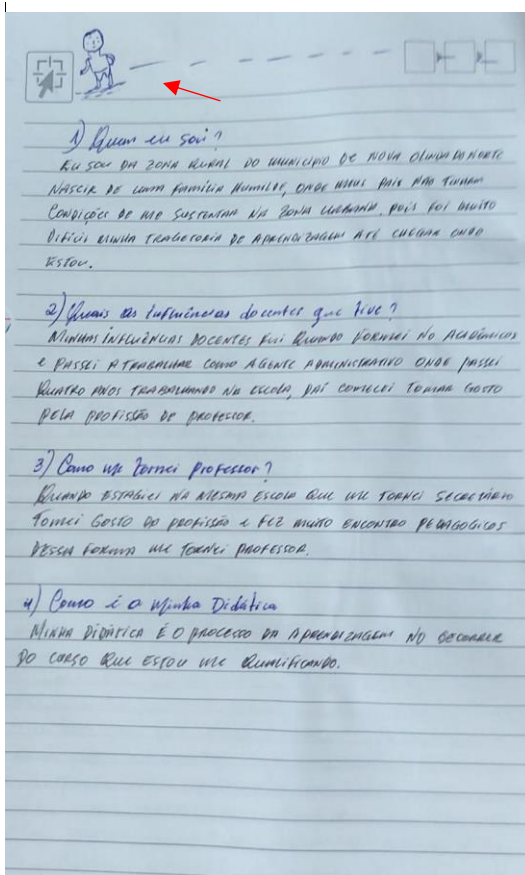 1) Quem eu sou?
Eu sou da zona rural do município de Nova Olinda do Norte
nascir de uma família humilde, onde meus pais não tinham
condições de me sustentar na zona urbana, pois foi muito
difícil minha tragetoria de aprendizagem até chegar onde
estou.
2) Quais as influências docentes que tive?
Minhas influências docentes foi quando formei no Acadêmicos
e passei a trabalhar como agente administrativo onde passei
quatro anos trabalhando na escola, daí comecei tomar gosto
pela profissão de professor.
3) Como me tornei professor?
Quando estagiei na mesma escola que me tornei secretário
tomei gosto da profissão e fez muito encontro pedagogicos
dessa forma me tornei professor.
4) Como é a minha Didática
Minha didática é o processo da aprendizagem no decorrer
do curso que estou me qualificando.